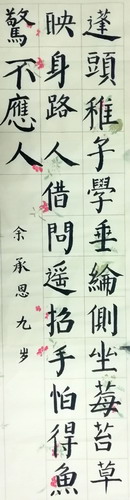 蓬頭稚子學垂綸側坐莓苔草
映身路人借問遥招手怕得魚
驚不應人
余承恩九岁